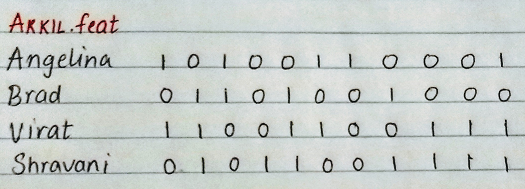 ARKIL.feat
Angelina 1 0 1 0 0 1 1 0 0 0 1
Brad 0 1 1 0 1 0 0 1 0 0 0
Virat 1 1 0 0 1 1 0 0 1 1 1
Shravani 0 1 0 1 1 0 0 1 1 1 1